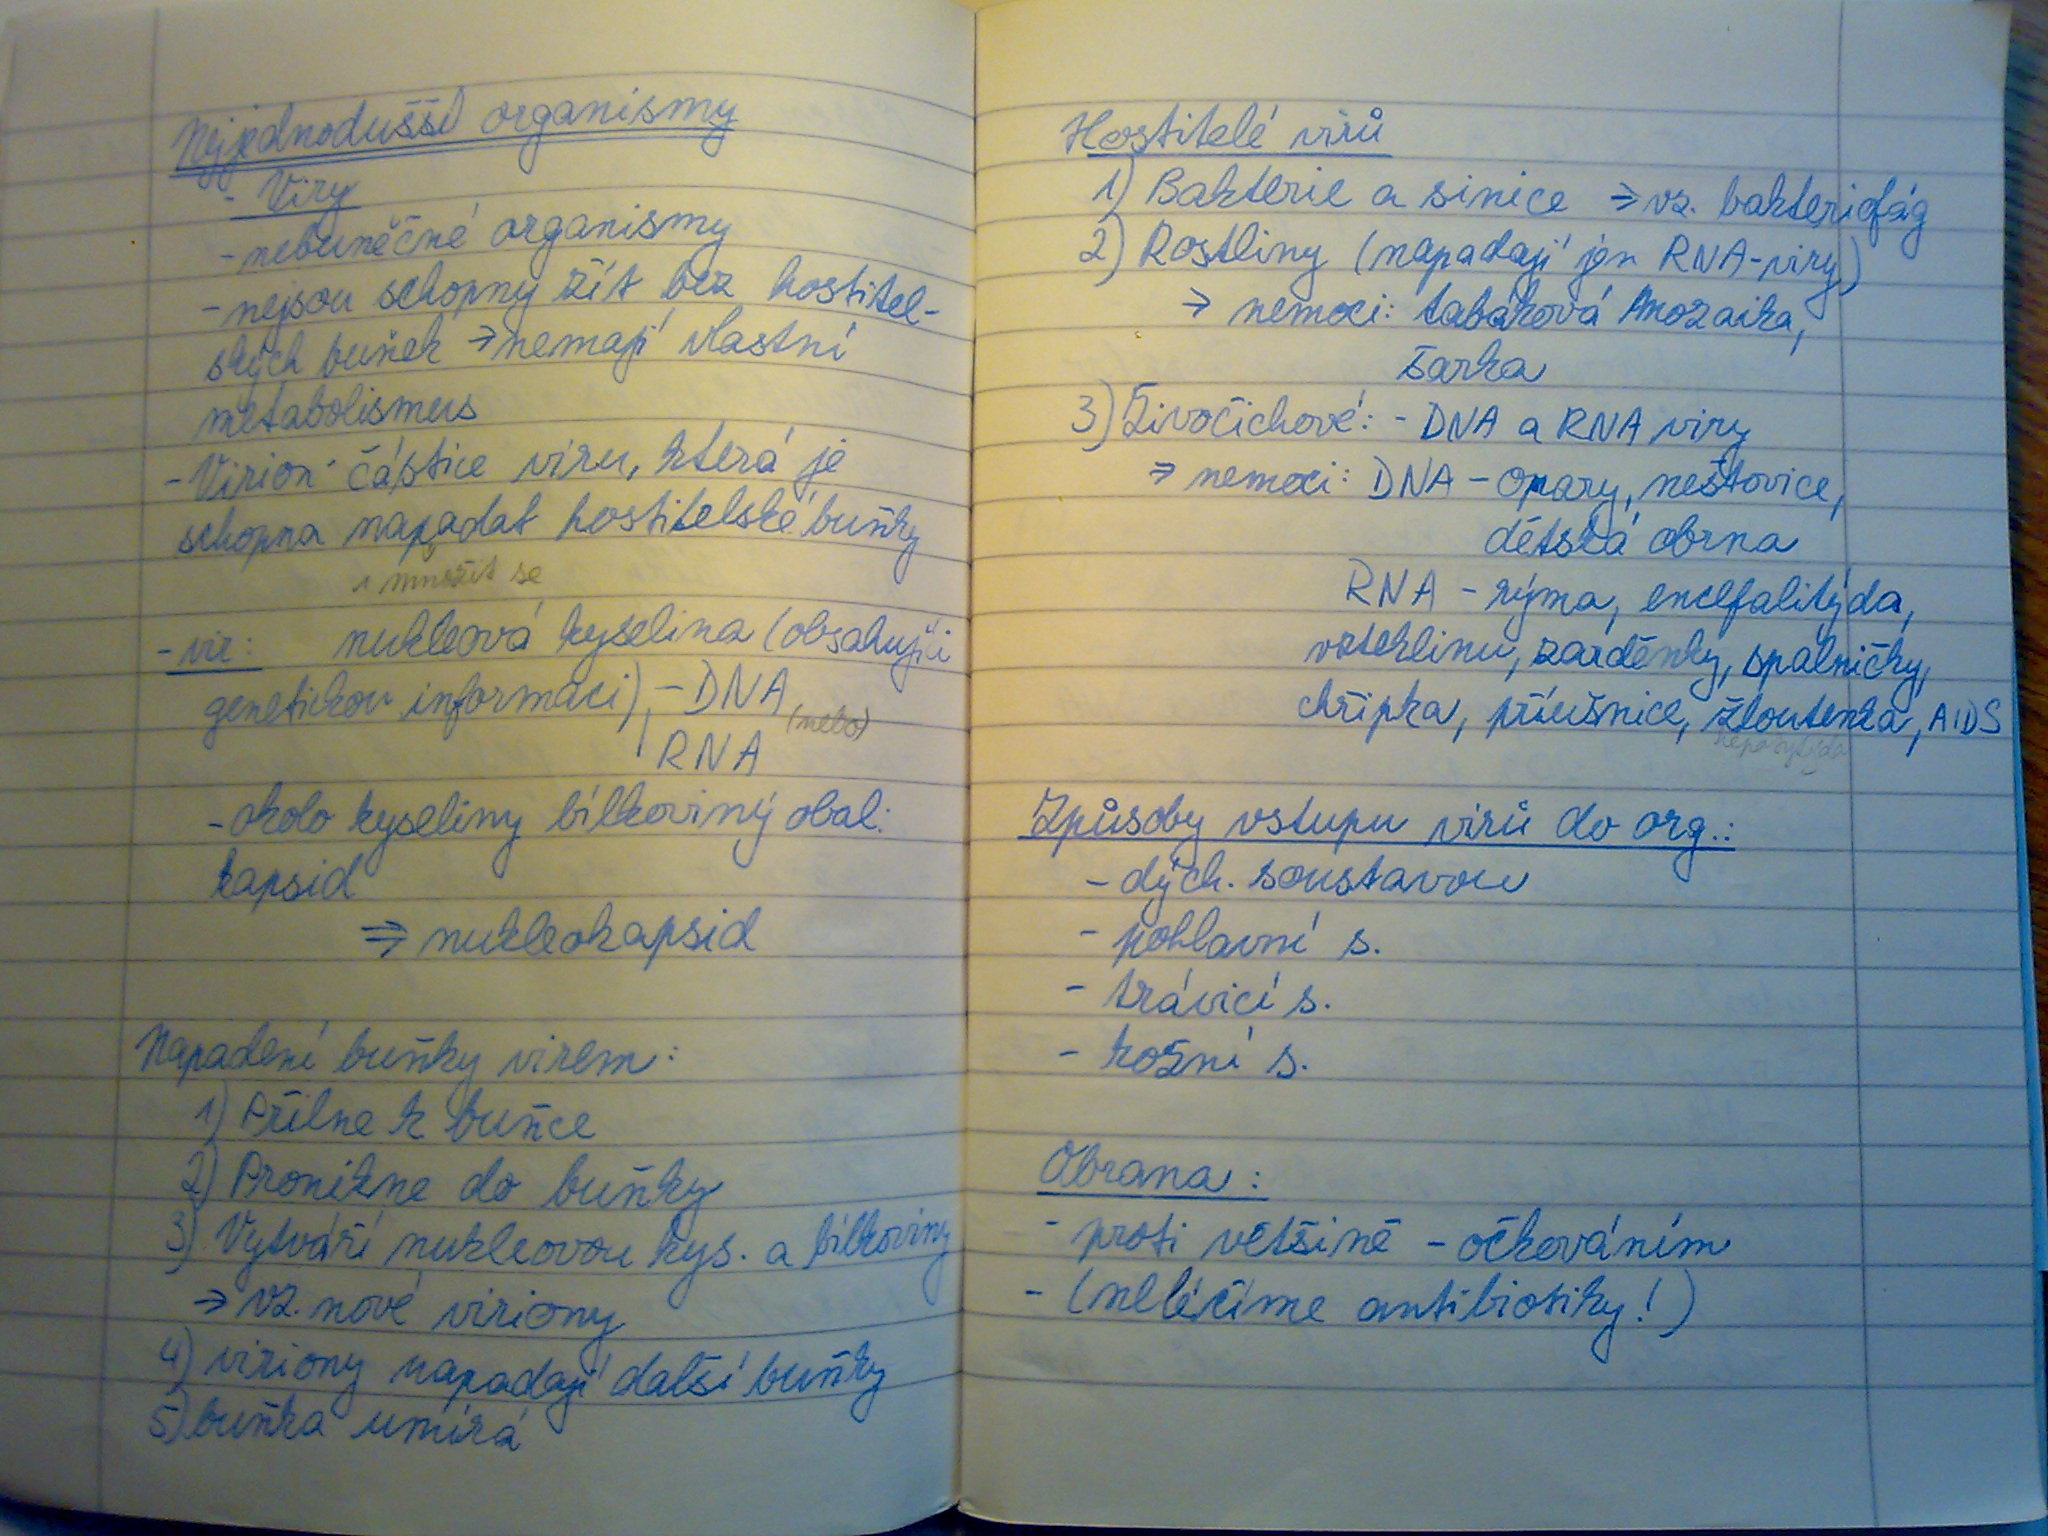 Nejjednodušší organismy
- Viry
- nebuněčné organismy
- nejsou schopny žít bez hostitel-
ských buňek → nemají vlastní
metabolismus
- Virion - částice viru, která je
schopna napadat hostitelské buňky
i množit se
- vir: nukleová kyselina (obsahující
genetickou informaci) - DNA
(nebo)
RNA
- okolo kyseliny bílkoviný obal:
kapsid
⇒ nukleokapsid
Napadení buňky virem:
1) Přilne k buňce
2) Pronikne do buňky
3) Vytváří nukleovou kys. a bílkoviny
→ vz. nové viriony
4) viriony napadají další buňky
5) buňka umírá
Hostitelé virů
1) Bakterie a sinice → vz. bakteriofág
2) Rostliny (napadají jen RNA-viry)
→ nemoci: tabáková mozaika,
šarka
3) Živočichové: - DNA a RNA viry
⇒ nemoci: DNA - opary, neštovice,
dětská obrna
RNA - rýma, encefalitýda,
vzteklinu, zarděnky, spalničky,
chřipka, příušnice, žloutenka, AIDS
Způsoby vstupu virů do org.:
- dých. soustavou
- pohlavní s.
- trávicí s.
- kožní s.
Obrana:
- proti většině - očkováním
- (neléčíme antibiotiky!)